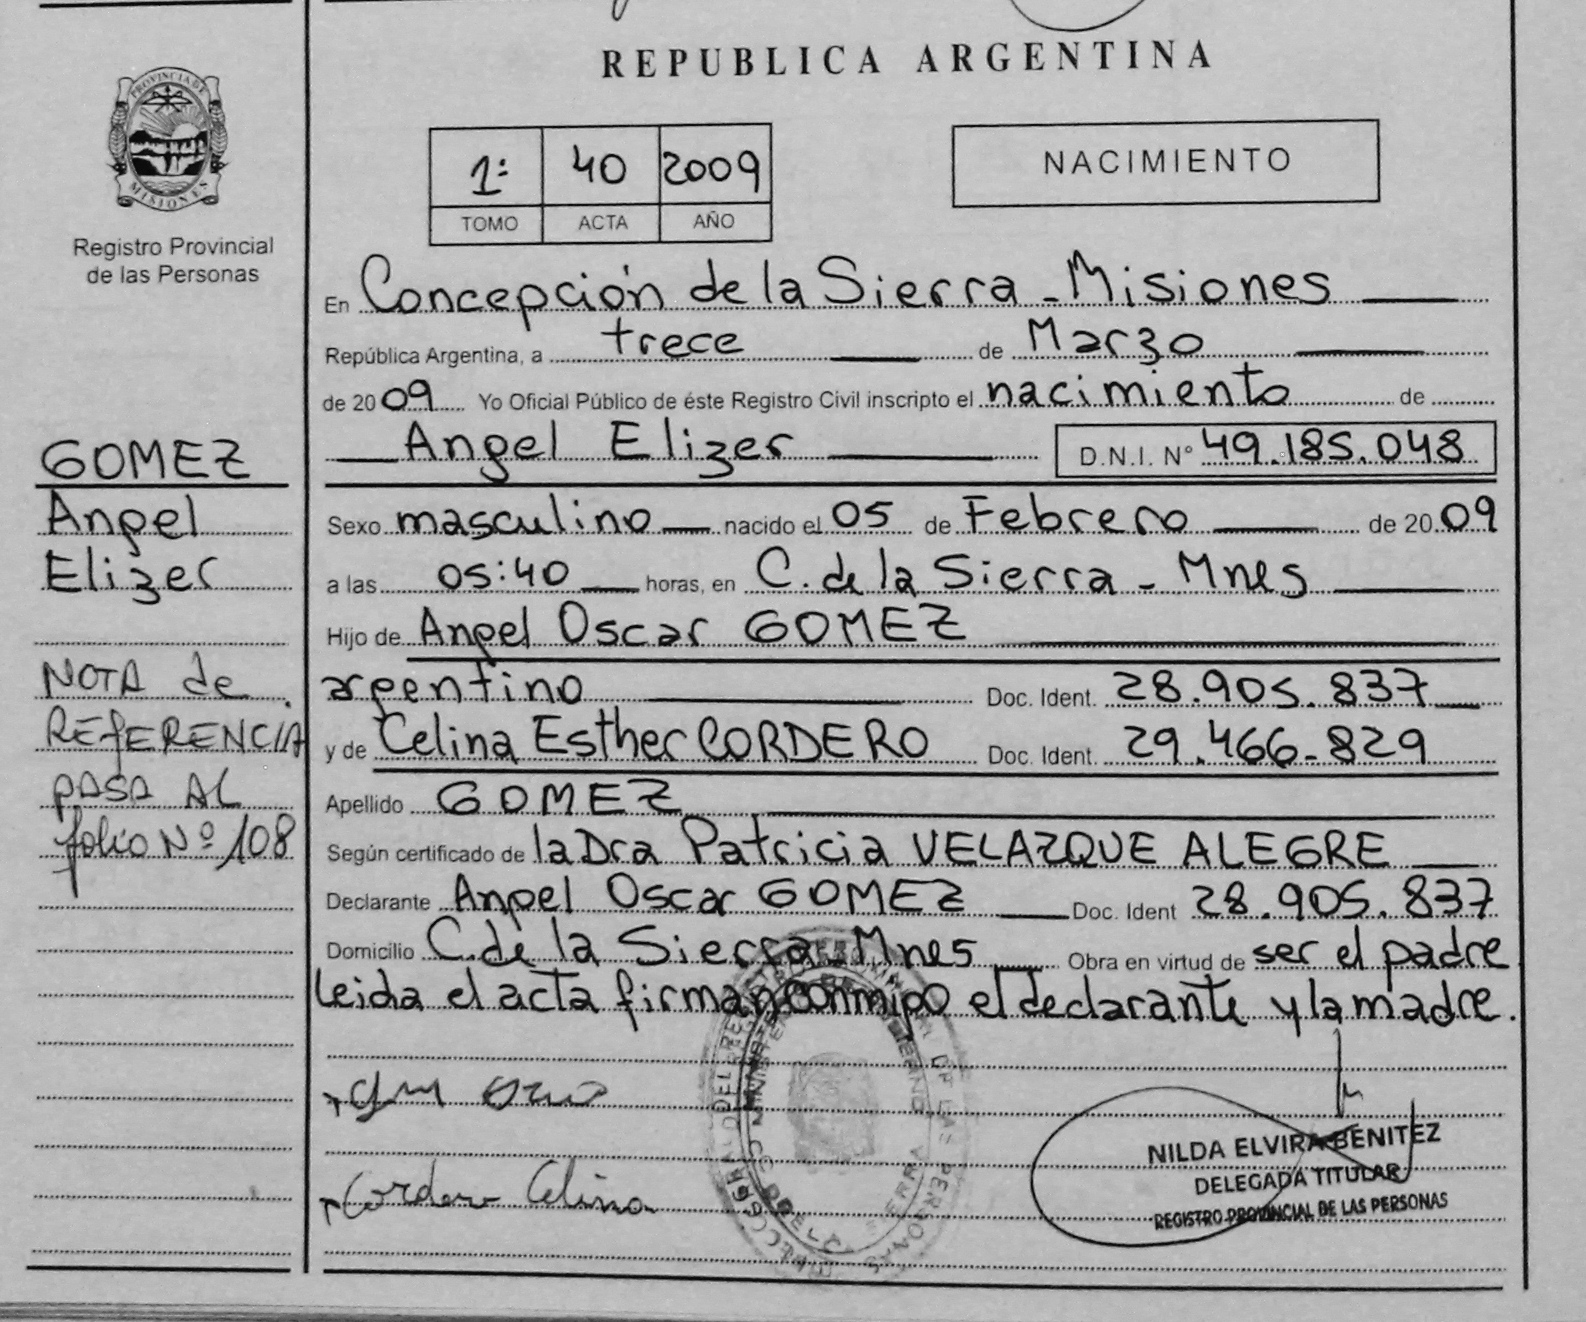 REPUBLICA ARGENTINA
PROVINCIA DE
MISIONES
Registro Provincial
de las Personas
1º 40 2009
TOMO ACTA AÑO
NACIMIENTO
En Concepción de la Sierra - Misiones
República Argentina, a trece de Marzo
de 2009 Yo Oficial Público de éste Registro Civil inscripto el nacimiento de
Angel Elizer D.N.I. Nº 49.185.048
GOMEZ
Angel
Elizer
NOTA de
REFERENCIA
PASA AL
folio Nº 108
Sexo masculino nacido el 05 de Febrero de 2009
a las 05:40 horas, en C. de la Sierra - Mnes
Hijo de Angel Oscar GOMEZ
argentino Doc. Ident. 28.905.837
y de Celina Esther CORDERO Doc. Ident. 29.466.829
Apellido GOMEZ
Según certificado de la Dra Patricia VELAZQUE ALEGRE
Declarante Angel Oscar GOMEZ Doc. Ident 28.905.837
Domicilio C. de la Sierra - Mnes Obra en virtud de ser el padre
leida el acta firman conmigo el declarante y la madre.
Cordero Celina
NILDA ELVIRA BENITEZ
DELEGADA TITULAR
REGISTRO PROVINCIAL DE LAS PERSONAS